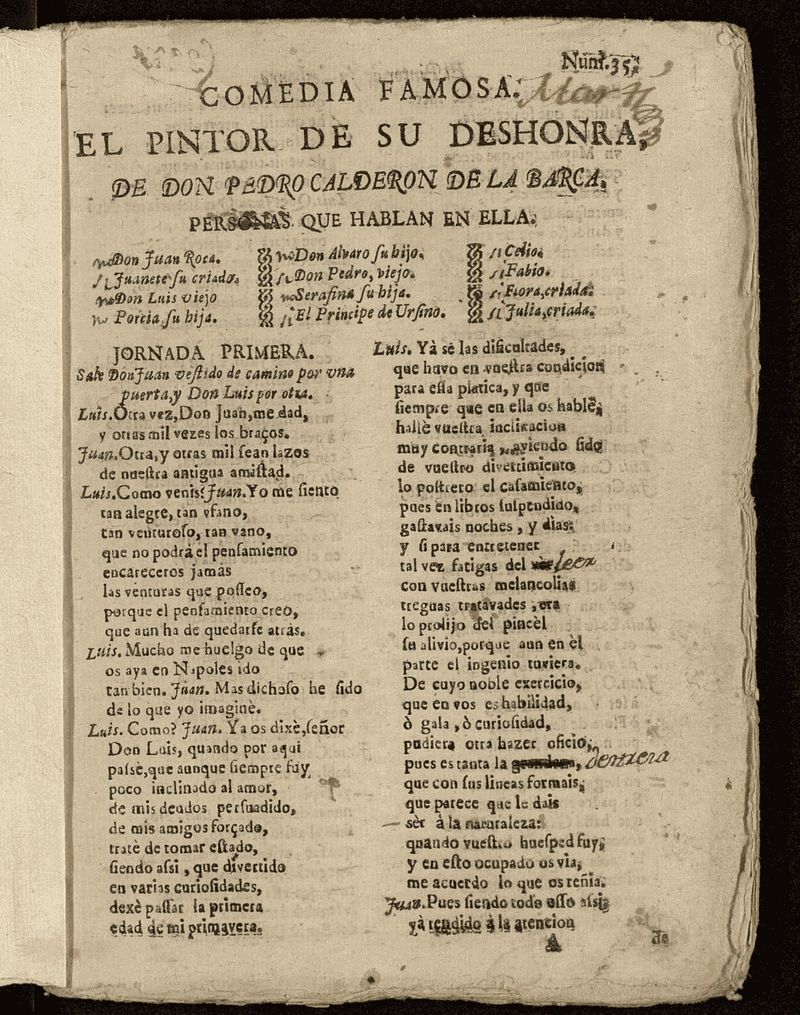 Num. 35.
COMEDIA FAMOSA.
EL PINTOR DE SU DESHONRA,
DE DON PEDRO CALDERON DE LA BARCA,
PERSONAS QUE HABLAN EN ELLA.
Don Juan Roca.
Juanete ſu criado.
Don Luis viejo
Porcia, ſu hija.
Don Alvaro ſu hijo.
Don Pedro, viejo.
Serafina ſu hija.
El Principe de Urſino.
Celio.
Fabio.
Flora, criada.
Julia, criada.
JORNADA PRIMERA.
Sale Don Juan veſtido de camino por vna
puerta, y Don Luis por otra.
Luis. Otra vez, Don Juan, me dad,
y otras mil vezes los braços.
Juan. Otra, y otras mil ſean lazos
de nueſtra antigua amiſtad.
Luis. Como venis? Juan. Yo me ſiento
tan alegre, tan vfano,
tan venturoſo, tan vano,
que no podrà el penſamiento
encareceros jamàs
las venturas que poſſeo,
porque el penſamiento creo,
que aun ha de quedarſe atràs.
Luis. Mucho me huelgo de que
os aya en Napoles ido
tan bien. Juan. Mas dichoſo he ſido
de lo que yo imaginè.
Luis. Como? Juan. Ya os dixè, ſeñor
Don Luis, quando por aqui
paſsè, que aunque ſiempre fuy
poco inclinado al amor,
de mis deudos perſuadido,
de mis amigos forçado,
tratè de tomar eſtado,
ſiendo aſsi, que divertido
en varias curioſidades,
dexè paſſar la primera
edad de mi primavera.
Luis. Yà sè las dificultades,
que huvo en vueſtra condicion
para eſſa platica, y que
ſiempre que en ella os hablè,
hallè vueſtra inclinacion
muy contraria, aviendo ſido
de vueſtro divertimiento
lo poſtrero el caſamiento,
pues en libros ſuſpendido,
gaſtavais noches, y dias:
y ſi para entretener
tal vez fatigas del leer
con vueſtras melancolias
treguas tratavades, era
lo prolijo del pincèl
ſu alivio, porque aun en èl
parte el ingenio tuviera.
De cuyo noble exercicio,
que en vos es habilidad,
ò gala, ò curioſidad,
pudiera otra hazer oficio,
pues es tanta la
que con ſus lineas formais,
que parece que le dais
sèr à la naturaleza:
quando vueſtro hueſped fuy,
y en eſto ocupado os via,
me acuerdo lo que os reñia.
Juan. Pues ſiendo todo eſſo aſsi,
yà rendido à la atencion
A
de